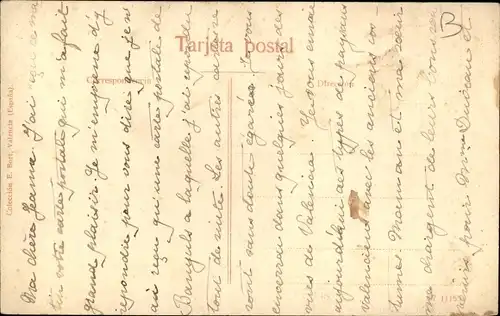 Tarjeta postal
Correspondencia
Dirección
Colección E. Bort, Valencia (España).
Ma chère Jeanne J'ai reçu ce ma-
tin votre carte postale qui m'a fait
grand plaisir. Je m'empresse d'y
répondre pour vous dire que je n'
ai reçu qu'une carte postale de
Banyuls à laquelle j'ai répondu
tout de suite. Les autres cartes se
sont sans doute égarées. Je vous
enverrai dans quelque jours des
vues de Valencia. Je vous envoie
aujourd'hui types de paysans
Valenciens avec les anciens cos-
tumes. Maman et ma sœur
me chargent de leurs bons sou-
venirs pour Mme et